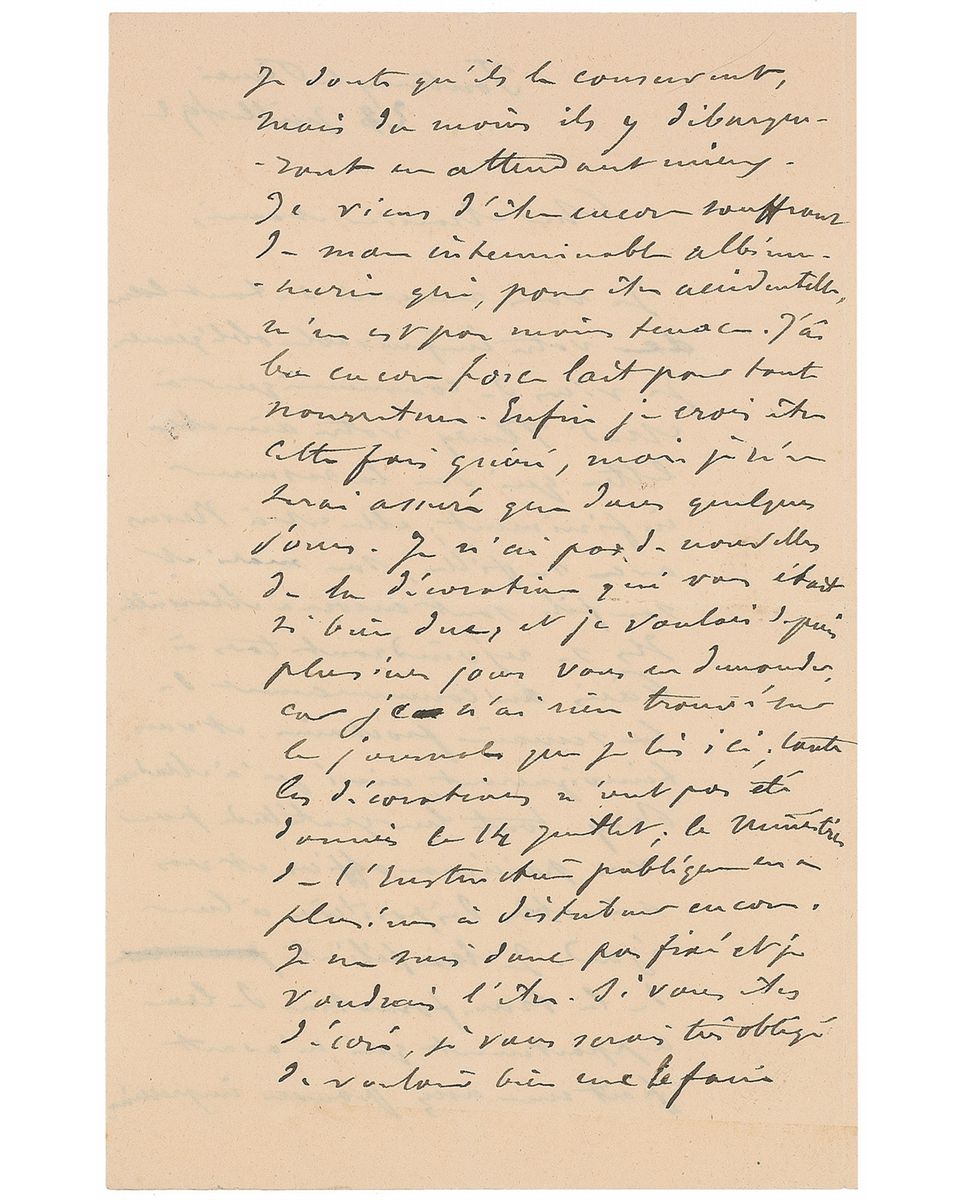 Je doute qu'ils le conservent,
mais du moins ils y débarque-
-ront en attendant mieux.
Je viens d'être encore souffrant
de mon interminable albumi-
-nerie qui, pour être accidentelle,
n'en est pas moins tenace. J'ai
bu encore force lait pour toute
nourriture. Enfin je crois être
cette fois guéri, mais je n'en
serai assuré que dans quelques
jours. Je n'ai pas de nouvelles
de la décoration qui vous était
si bien due, et je voulais depuis
plusieurs jours vous en demander,
car je n'ai rien trouvé sur
le journal que je lis ici, toutes
les décorations n'ont pas été
données le 14 juillet; le Ministère
de l'Instruction publique en a
plusieurs à distribuer encore.
Je ne suis donc pas fixé et je
voudrais l'être. Si vous êtes
décoré, je vous serais très obligé
de vouloir bien me le faire